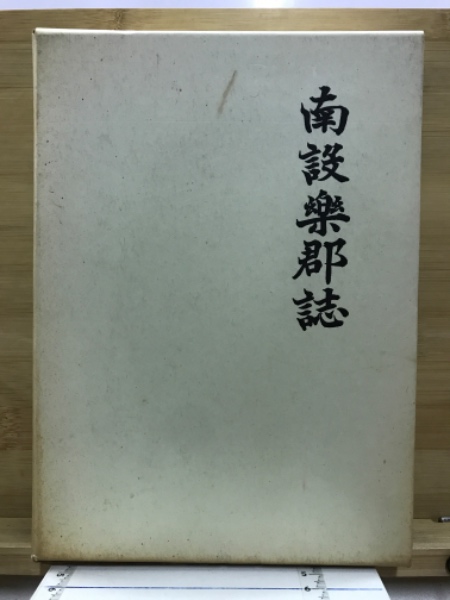 南設樂郡誌